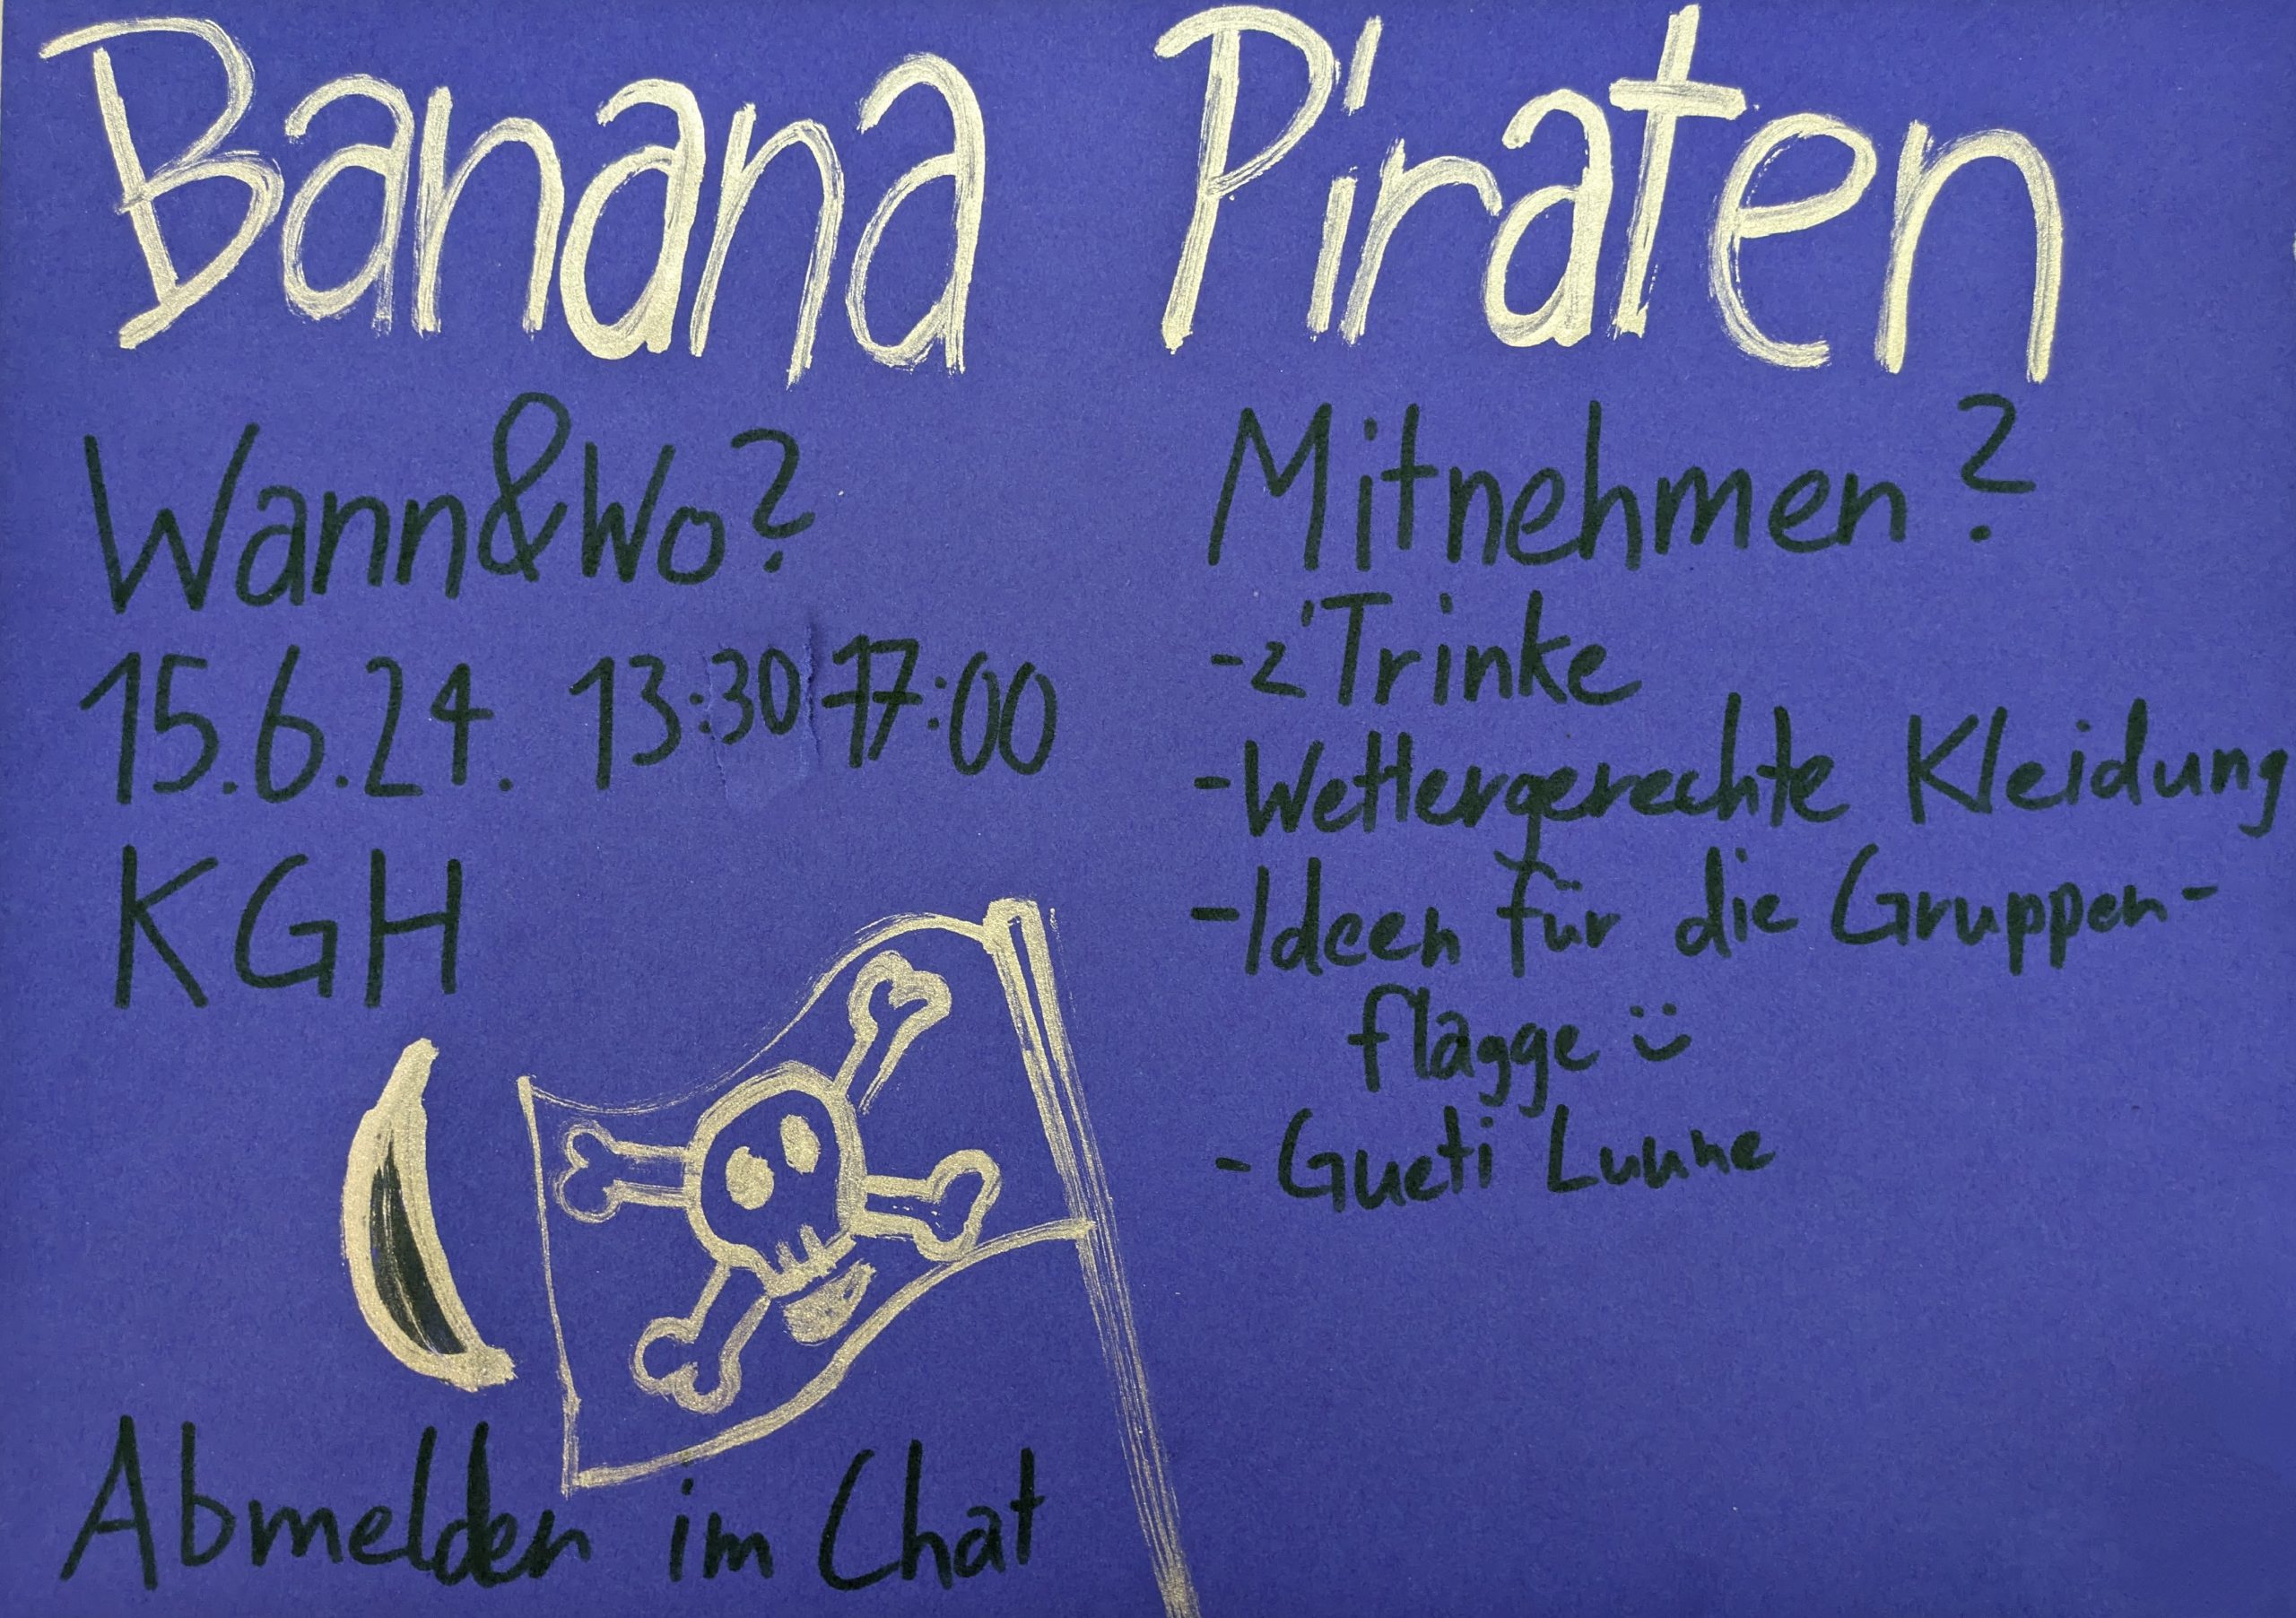 Banana Piraten
Wann&Wo?
15.6.24. 13:30-17:00
KGH
Mitnehmen?
-z'Trinke
-Wettergerechte Kleidung
-Ideen für die Gruppen-
flagge ü
- Gueti Lunne
Abmelden im Chat